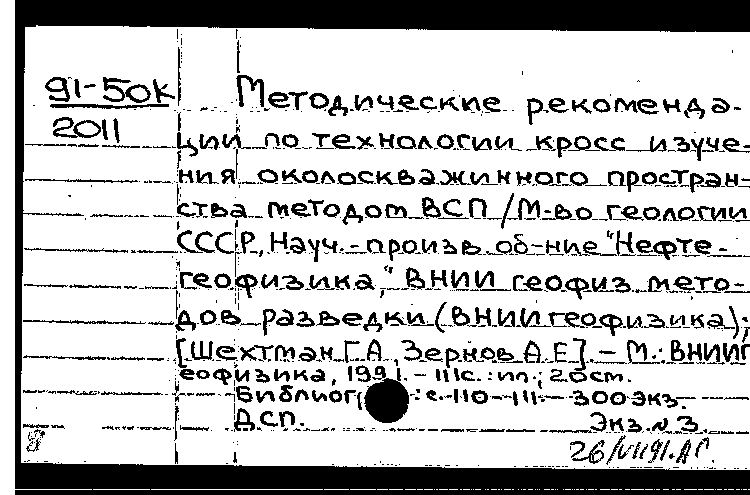 91-50к
2011
Методические рекоменда-
ции по технологии кросс изуче-
ния околоскважинного простран-
ства методом ВСП / М-во геологии
СССР, Науч.-произв. об-ние "Нефте-
геофизика," ВНИИ геофиз. мето-
дов разведки (ВНИИгеофизика);
[Шехтман Г.А., Зернов А.Е]. – М.: ВНИИГ
еофизика, 1991. – 111с. : ил.; 20см.
Библиогр : с. 110-111. – 300 экз.
ДСП. Экз. N 3.
8 26/VI 91. АГ.